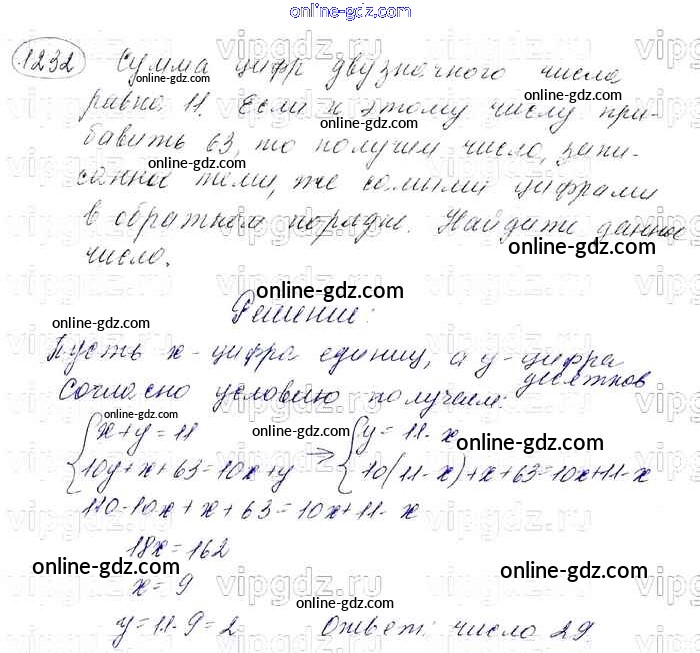 online-gdz.com
1232 Сумма цифр двузначного числа
равна 11. Если к этому числу при-
бавить 63, то получим число, запи-
санное теми, же самыми цифрами
в обратном порядке. Найдите данное
число.
online-gdz.com
Решение:
online-gdz.com
Пусть x - цифра единиц, а y - цифра
десятков
Согласно условию получаем:
{x+y=11 → {y=11-x
{10y+x+63=10x+y {10(11-x)+x+63=10x+11-x
110-10x+x+63=10x+11-x
18x=162
online-gdz.com
x=9
y=11-9=2 Ответ: число 29
online-gdz.com
vipgdz.ru